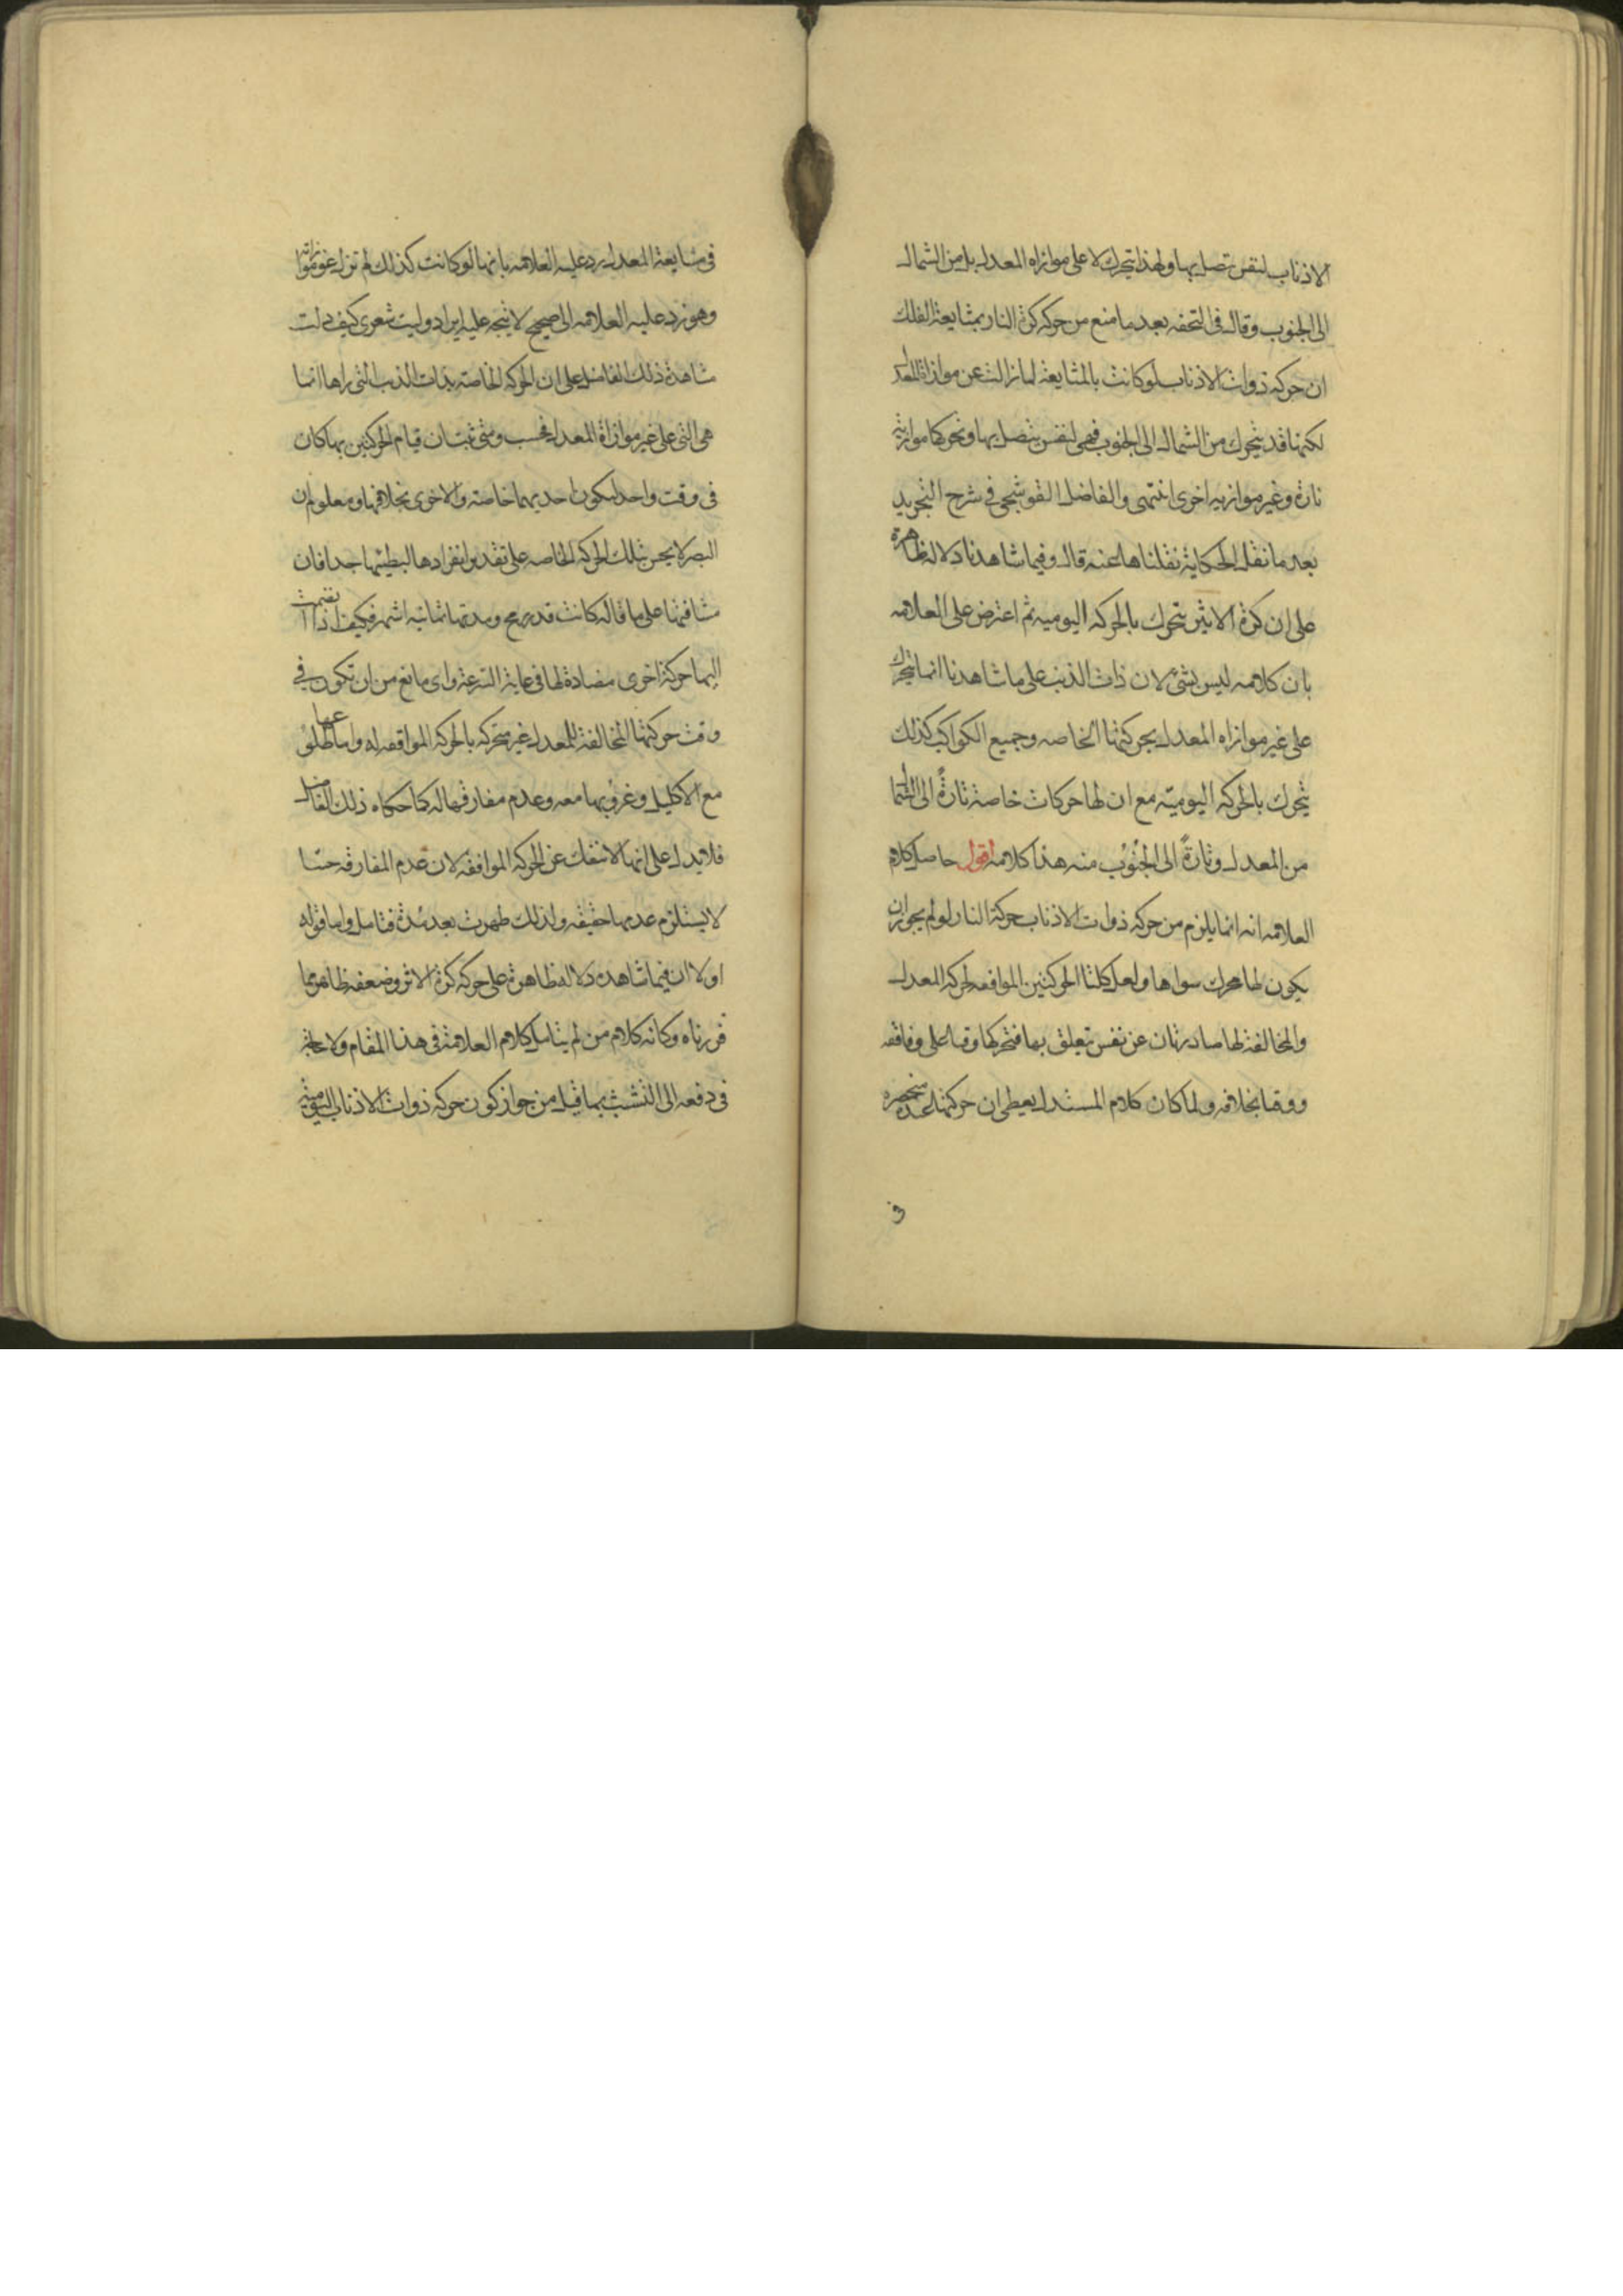 الاذناب لنفس تتصل بها ولهذا تتحرك لا على موازاه المعدل بل من الشمال
الى الجنوب وقال فى التحفه بعد ما منع من حركه كرة النار بمشايعة الفلك
ان حركه ذوات الاذناب لو كانت بالمشايعة لما زالت عن موازاة المعدل
لكنها قد يتحرك من الشمال الى الجنوب فهى لنفس يتصل بها وتحركها موازيه
تارة وغير موازيه اخرى انتهى والفاضل القوشجى فى شرح التجريد
بعد ما نقل الحكاية نقلناها عنه قال وفيما شاهدنا دلاله ظاهرة
على ان كرة الاثير يتحرك بالحركه اليوميه ثم اعترض على العلامه
بان كلامه ليس بشئ لان ذات الذنب على ما شاهدنا انما يتحرك
على غير موازاه المعدل بحركتها الخاصه وجميع الكواكب كذلك
يتحرك بالحركه اليوميه مع ان لها حركات خاصة تارةً الى الشمال
من المعدل وتارةً الى الجنوب منه هذا كلامه اقول حاصل كلام
العلامه انه انما يلزم من حركه ذوات الاذناب حركة النار لو لم يجز ان
يكون لها محرك سواها ولعل كلتا الحركتين الموافقه لحركه المعدل
والمخالفة لها صادرتان عن نفس تتعلق بها فتحركها وقتا على وفاقه
ووقتا بخلافه ولما كان كلام المستدل يعطى ان حركتها عنده منحصره
فى
فى مشايعة المعدل يرد عليه العلامه بانها لو كانت كذلك لم تزل عن موازاته
وهو رد عليه العلامه الى صحيح لا يتجه عليه ايراد وليت شعرى كيف دلت
مشاهدة ذلك الفاضل على ان الحركه الخاصة بذات الذنب التى راها انما
هى التى على غير موازاة المعدل فحسب ومتى ثبت ان قيام الحركتين بها كان
فى وقت واحد ليكون احديهما خاصة والاخرى بخلافها ومعلوم ان
البصر لا يحس بتلك الحركه الخاصه على تقدير انفرادها لبطئها جدا فان
مسافتها على ما قاله كانت قدر رمح ومدتها ثمانيه اشهر فكيف اذا انضمت
اليها حركة اخرى مضادة لها فى غاية السرعة واى مانع من ان تكون فى
وقت حركتها المخالفة للمعدل غير متحركه بالحركه الموافقه له واما طلوعها
مع الاكليل وغروبها معه وعدم مفارقتها له كما حكاه ذلك الفاضل
فلا يدل على انها لا تنفك عن الحركه الموافقه لان عدم المفارقه حسا
لا يستلزم عدمها حقيقه ولذلك ظهرت بعد مدة فتامل واما قوله
اولا ان فيما شاهده دلاله ظاهرة على حركه كرة الاثير وضعفه ظاهر مما
قررناه وكانه كلام من لم يتامل كلام العلامة فى هذا المقام ولا حاجة
فى دفعه الى التشبث بما قيل من جواز كون حركه ذوات الاذناب اليوميه